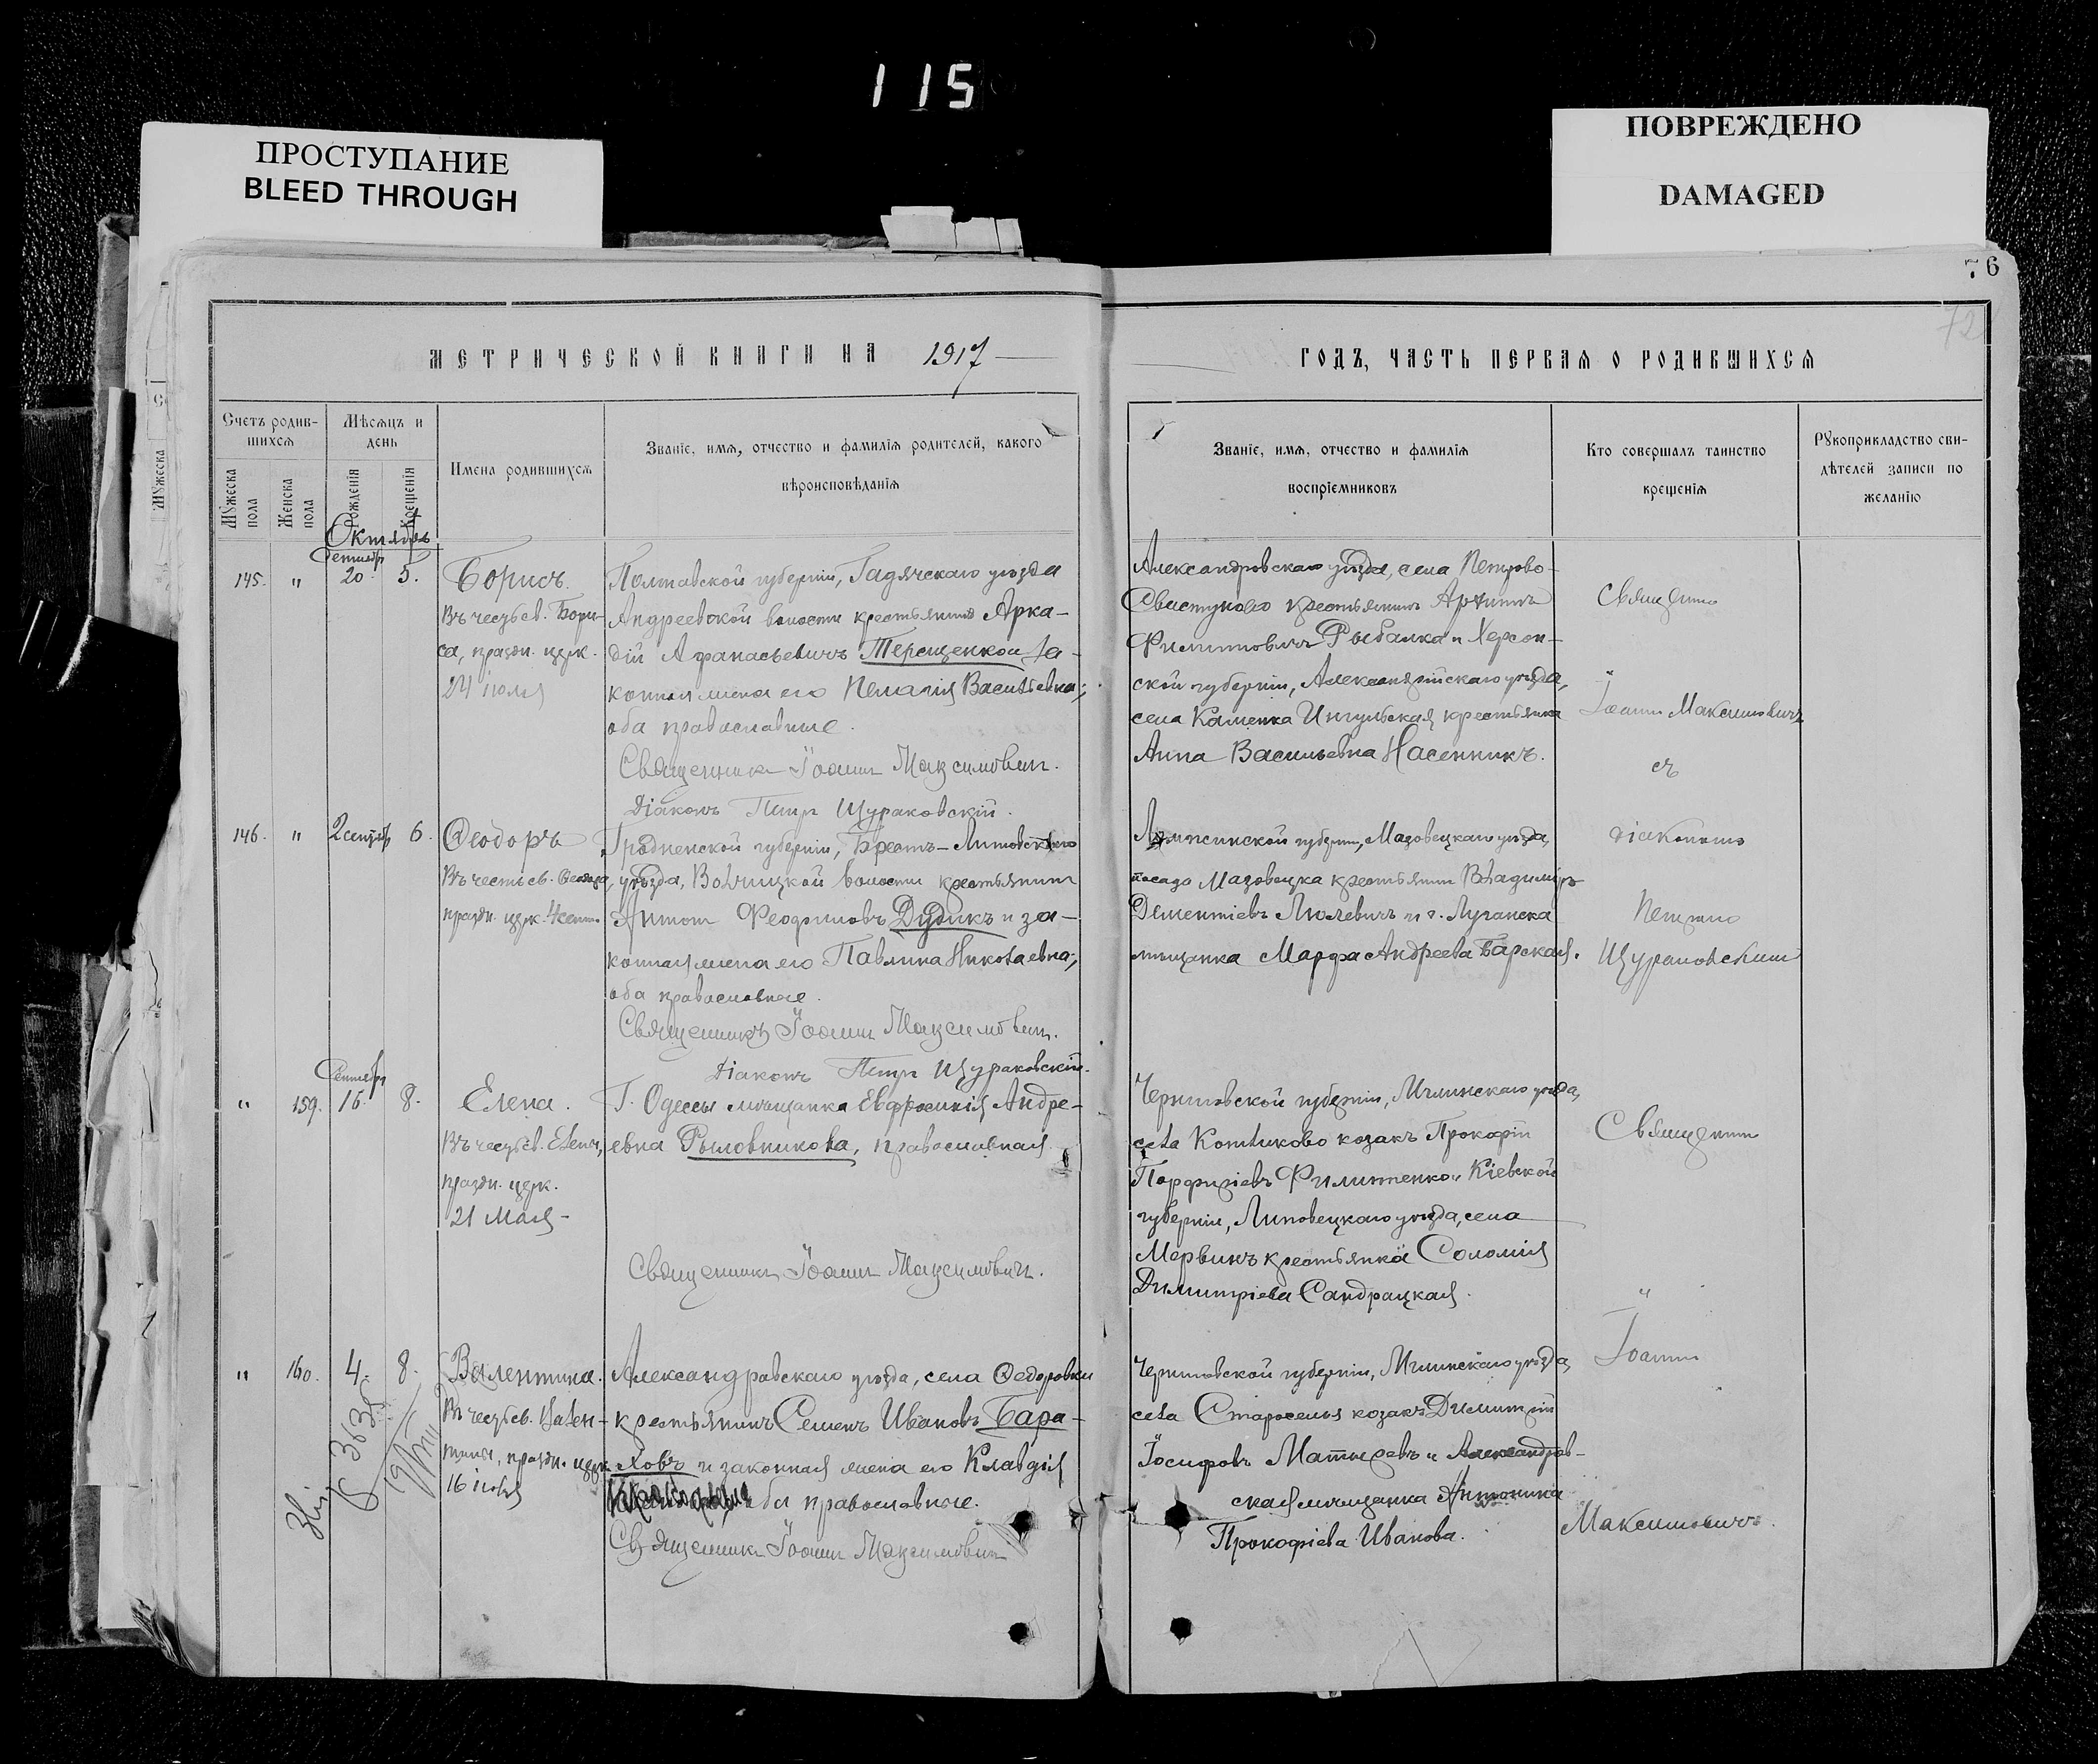 115
ПРОСТУПАНИЕ
BLEED THROUGH
ПОВРЕЖДЕНО
DAMAGED
76
72
МЕТРИЧЕСКОЙ КНИГИ НА 1917
Счетъ родив-
шихся
Мѣсяцъ и
день
Мужеска
пола
Женска
пола
Рожденія
Крещенія
Имена родившихся
Званіе, имя, отчество и фамилія родителей, какого
вѣроисповѣданія
Октябрь
145. " Сентябр 20 5.
Борисъ.
Въ честь св. Бори-
са, праздн. церк.
24 іюля
Полтавской губерніи, Гадячскаго уѣзда
Андреевской волости крестьянинъ Арка-
дій Афанасьевичъ Терещенко и за-
конная жена его Пелагія Васильевна;
оба православные.
Священникъ Іоаннъ Максимович.
Діаконъ Петръ Щураковскій.
146. " 2 сентяб 6.
Ѳеодоръ
Въ честь св. Ѳеодора,
праздн. церк. 4 сент.
Гродненской губерніи, Брестъ-Литовскаго
уѣзда, Волчицкой волости крестьянинъ
Антонъ Феофиловъ Дудикъ и за-
конная жена его Павлина Николаевна;
оба православные.
Священникъ Іоаннъ Максимович.
Діаконъ Петръ Щураковскій.
" 159. Сентября 16. 8.
Елена.
Въ честь св. Елены,
праздн. церк.
21 Мая-
Г. Одессы мѣщанка Евфросинія Андре-
евна Рыловникова, православная
Священникъ Іоаннъ Максимович.
" 160. 4. 8.
Валентина.
Въ честь св. Вален-
тины, праздн. церк.
16 іюля
Александровскаго уѣзда, села Ѳедоровки
крестьянинъ Семенъ Ивановъ Бара-
ховъ и законная жена его Клавдія
оба православные.
Священникъ Іоаннъ Максимович
ГОДЪ, ЧАСТЬ ПЕРВАЯ О РОДИВШИХСЯ
Званіе, имя, отчество и фамилія
воспріемниковъ
Кто совершалъ таинство
крещенія
Рукоприкладство сви-
дѣтелей записи по
желанію
Александровскаго уѣзда, села Петрово-
Свистуново крестьянинъ
Филипповичъ Рыбалка и Херсон-
ской губерніи, Александрійскаго уѣзда,
села Каменка Ингульская крестьянка
Анна Васильевна Насенникъ.
Ломжинской губерніи, Мазовецкаго уѣзда,
посада Мазовецка крестьянинъ Владиміръ
Дементіевъ Люлевичъ и г. Луганска
мѣщанка Марфа Андреева Барская.
Черниговской губерніи, Мглинскаго уѣзда,
села Котляково козакъ Прокофій
Порфиріевъ Филипенко и Кіевской
губерніи, Липовецкаго уѣзда, села
Мервинъ крестьянка Соломія
Димитріева Сандрацкая.
Черниговской губерніи, Мглинскаго уѣзда,
села Староселья козакъ Димитрій
Іосифовъ Матыревъ и Александров-
ская мѣщанка Антонина
Прокофіева Иванова.
Священникъ
Іоаннъ Максимовичъ
съ
діакономъ
Петромъ
Щураковскимъ
Священникъ
Іоаннъ
Максимовичъ.